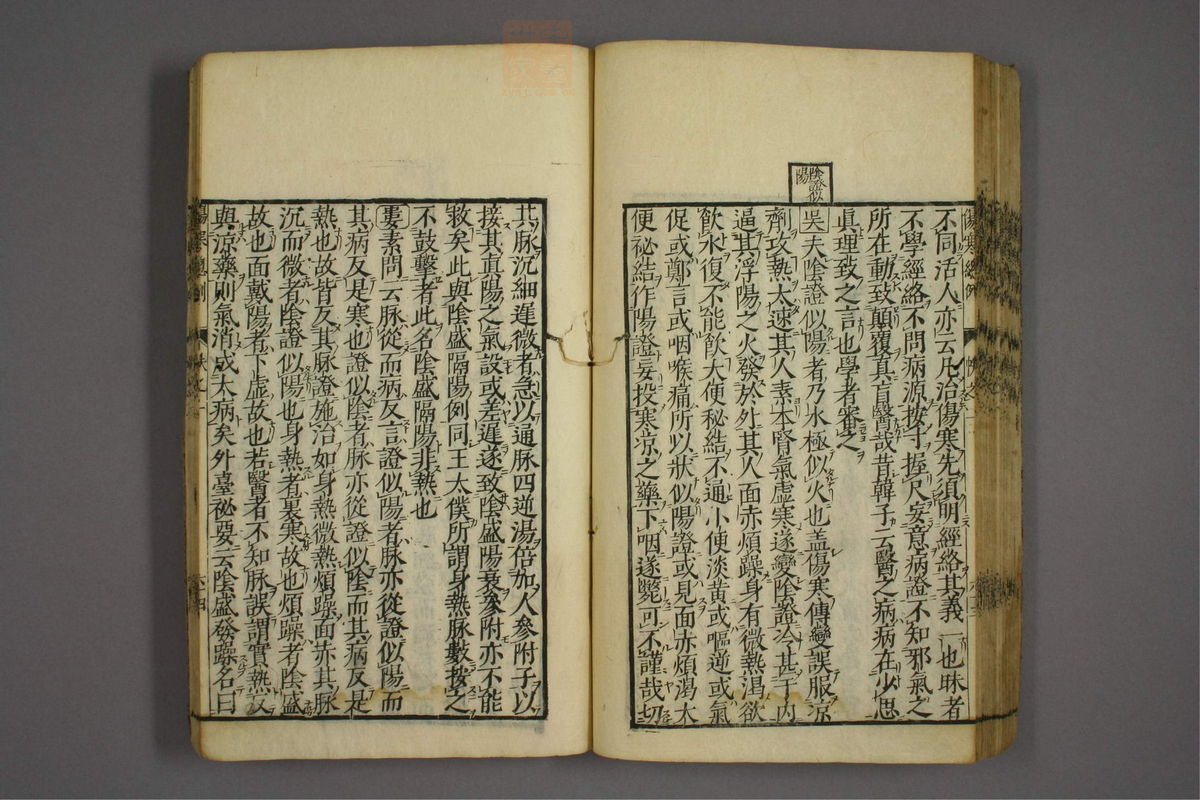 不同活人亦云凡治傷寒先須明經絡其義一也昧者
不學經絡不問病源按寸握尺妄意病證不知邪氣之
所在動致顛覆真盲醫哉昔韓子云醫之病病在少思
眞理致之言也學者審之
陰證似陽
吳夫陰證似陽者乃水極似火也盖傷寒傳變誤服凉
劑攻熱太速其人素本腎氣虛寒遂變陰證冷甚于内
逼其浮陽之火發於外其人面赤煩躁身有微熱渴欲
飲水復不能飲大便秘結不通小便淡黄或嘔逆或氣
促或鄭言或咽喉痛所以狀似陽證或見面赤煩渴大
便祕結作陽證妄投寒凉之藥下咽遂斃可不謹哉切
其脉沉細遲微者急以通脉四逆湯倍加人參附子以
接其真陽之氣設或差遲遂致陰盛陽衰參附亦不能
救矣此與陰盛隔陽例同王太僕所謂身熱脉數按之
不鼓擊者此名陰盛隔陽非熱也
婁素問云脉從而病反言證似陽者脉亦從證似陽而
其病反是寒也證似陰者脉亦從證似陰而其病反是
熱也故皆反其脉證施治如身熱微熱煩躁面赤其脉
沉而微者陰證似陽也身熱者裏寒故也煩躁者陰盛
故也面戴陽者下虛故也若醫者不知脉誤謂實熱反
與凉藥則氣消成大病矣外臺祕要云陰盛發躁名曰